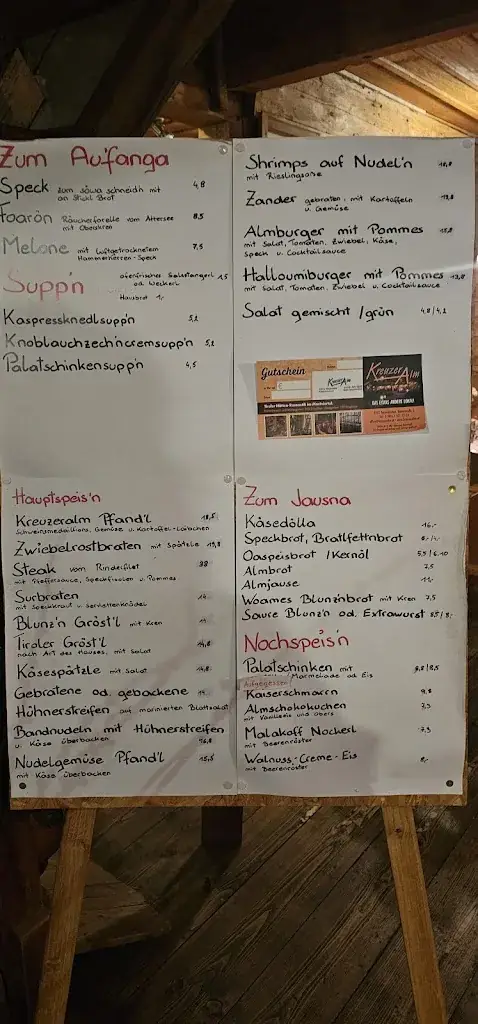 Zum Au'fanga
Speck zum såwa schneidn mit an Stickl Brot 4,8
Foarön Räucherforelle vom Attersee mit Oberskren 8,5
Melone mit luftgetrocknetem Hammerherren-Speck 7,5
Supp'n
ofenfrisches Salzstangerl od. Weckerl 1,5
Hausbrot 1,-
Kaspressknedlsupp'n 5,2
Knoblauchzech'ncremsupp'n 5,2
Palatschinkensupp'n 4,5
Shrimps auf Nudel'n
mit Rieslingsoße
Zander gebraten, mit Kartoffeln
u. Gemüse
Almburger mit Pommes
mit Salat, Tomaten, Zwiebel, Käse,
Speck u. Cocktailsauce
Halloumiburger mit Pommes
mit Salat, Tomaten, Zwiebel u. Cocktailsauce
Salat gemischt /grün 4,8 / 4,2
Gutschein
Kreuzer Alm
DAS ETWAS ANDERE LOKAL!
Hauptspeis'n
Kreuzeralm Pfand'l 18,5
Schweinsmedaillions, Gemüse u. Kartoffel-Laibchen
Zwiebelrostbraten mit Spätzle 19,8
Steak vom Rinderfilet
mit Pfeffersauce, Speckfisolen u. Pommes
Surbraten 14.-
mit Speckkraut u. Serviettenknödel
Blunz'n Gröst'l mit Kren
Tiroler Gröst'l 14,8
nach Art des Hauses, mit Salat
Käsespätzle mit Salat 14,8
Gebratene od. gebackene
Hühnerstreifen auf marinierten Blattsalat
Bandnudeln mit Hühnerstreifen
u. Käse überbacken 16,8
Nudelgemüse Pfand'l 15,5
mit Käse überbacken
Zum Jausna
Käsedölla 16.-
Speckbrot, Bratlfettnbrot
Oaspeisbrot /Kernöl 5,5 / 6.10
Almbrot 7,5
Almjause 11,-
Woames Blunznbrot mit Kren 7,5
Saure Blunz'n od. Extrawurst 8,5 / 8,-
Nochspeis'n
Palatschinken mit
Marmelade od. Eis
Aufgegessen
Kaiserschmarrn 9,8
Almschokokuchen 7,3
mit Vanilleeis und Obers
Malakoff Nockerl 7,3
mit Beerenröster
Walnuss-Creme-Eis 8,-
mit Beerenröster